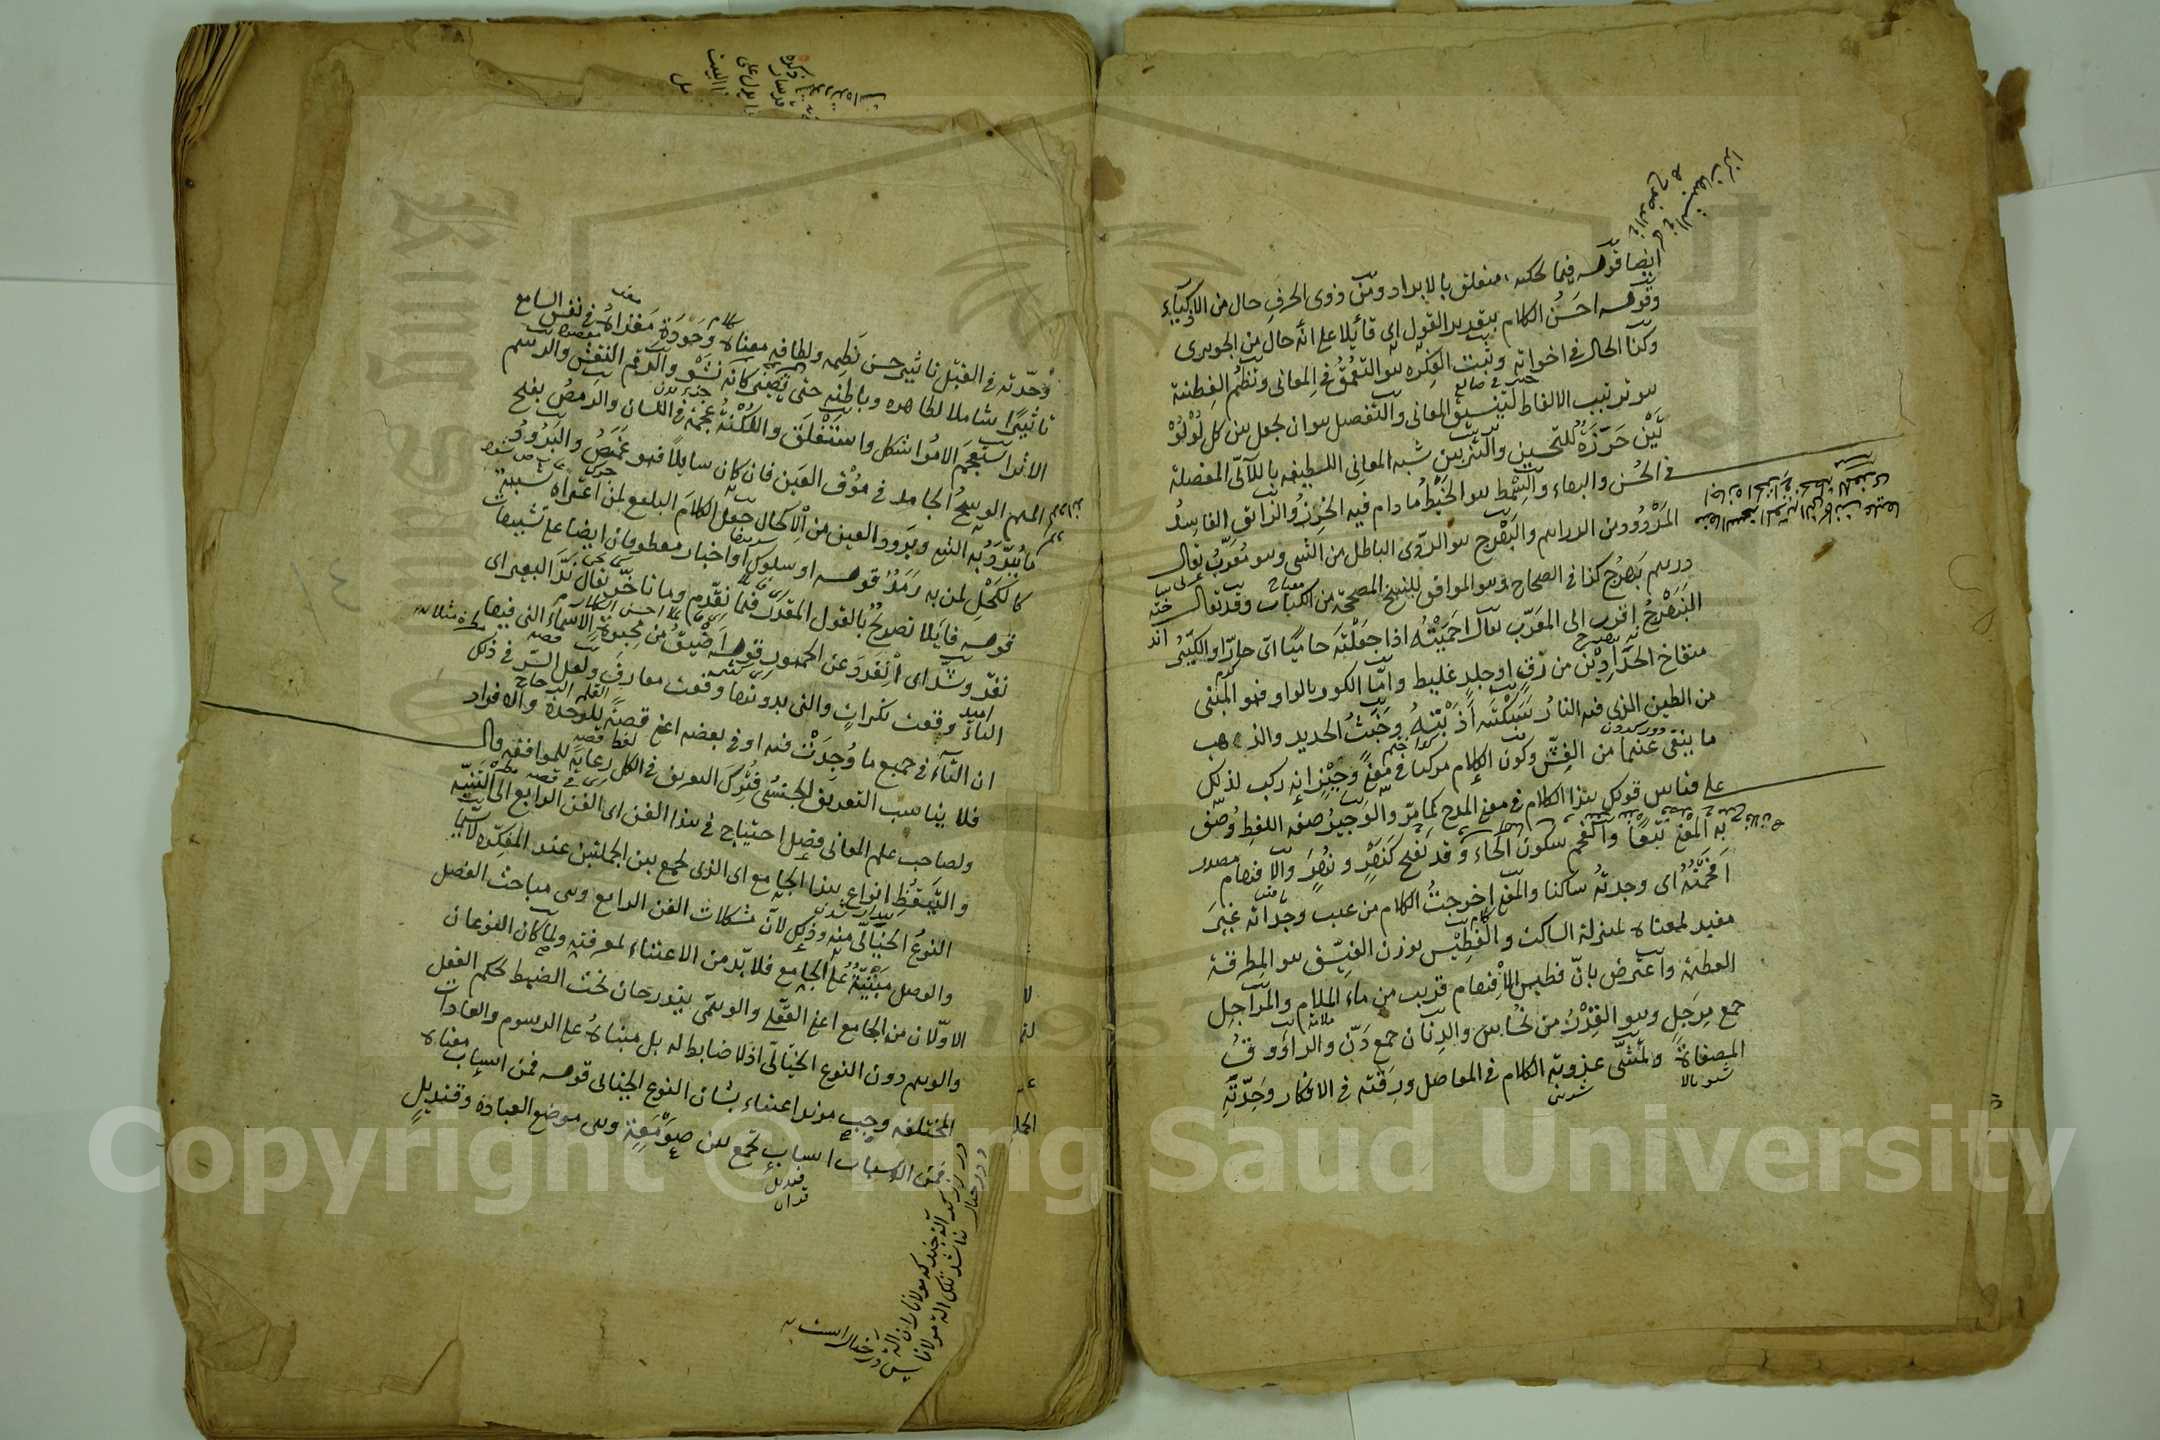 ايضا قوله فيما نحكيه متعلق بالايراد ومن ذوى الحرف حال من الاذكياء
وقوله احسن الكلام بتقدير القول اى قائلا على انه حال من الجوهرى
وكذا الحال فى اخواته وثبت الفكره هو التعمق فى المعانى ونظم الفطنة
هو ترتيب الالفاظ لتنسيق المعانى والتفصيل هو ان يجعل بين كل لؤلؤ
تين خرزة للتحسين والتزيين شبه المعانى اللطيفه باللآلى المفصلة
فى الحسن والبهاء والسمط هو الخيط ما دام فيه الخرز والزائف الفاسد
المردود من الدراهم والبهرج هو الردى الباطل من الشى وهو معرب يقال
درهم بهرج كذا فى الصحاح وهو الموافق للنسخ المصححة من الكتاب وقد يقال
النبهرج اقرب الى المعرب يقال احميته اذا جعلته حاميا اى حارا والكير
منفاخ الحدادين من زق او جلد غليظ واما الكور بالواو فهو المبنى
من الطين الذى فيه النار سبكته اذبته وخبث الحديد والذهب
ما ينقى عنهما من الغش وكون الكلام مركبا فى معنى وجيز انه ركب لذلك
على قياس قولك هذا الكلام فى معنى المدح كما مر والوجيز صفه اللفظ وصف
به المعنى تبعا والفحم بسكون الحاء وقد تفتح كنهر ونهر والافحام مصدر
افحمته اى وجدته ساكتا والمعنى اخرجت الكلام من عيب وجدانه غير
مفيد لمعناه بمنزلة الساكت والفطيس بوزن الفسيق هو المطرقة
العظيمة واعترض بان فطيس الافحام قريب من ماء الملام والمراجل
جمع مرجل وهو القدر من نحاس والدنان جمع دن والراووق
المصفاة وتمشى عذوبة الكلام فى المفاصل ورقته فى الافكار وحدته
وحدته فى العقل تاثير حسن نظمه ولطافه معناه وجودة مغزاه فى نفس السامع
تاثيرا شاملا لظاهره وباطنه حتى يصير كانه نشو والرقم النقش والرسم
الاثر استعجم الامر اشكل واستغلق واللكنة عجمة فى اللسان والرمص بفتح
الميم الوسخ الجامد فى مؤق العين فان كان سايلا فهو غمص والبرود
ما يبرد به الشى وبرود العين من الاكحال جعل الكلام البليغ لمن اعتراه شبهة
كالكحل لمن به رمد قوله او سلوك او اخبار معطوفان ايضا على تشبيهات
قوله قايلا تصريح بالقول المقدر فيما تقدم وما تاخر يقال ند البعير اى
نفر وشد اى انفرد عن الجمهور قوله اضيق من محبرة الاسماء التى فيها
التاء وقعت نكرات والتى بدونها وقعت معارف ولعل السر فى ذلك
ان التاء فى جميع ما وجدت فيه او فى بعضه اعنى قصة للوحدة والافراد
فلا يناسب التعريف الجنسى فترك التعريف فى الكل رعاية للموافقه قال
ولصاحب علم المعانى فضل احتياج فى هذا الفن اى الفن الرابع الى التنبه
والتيقظ انواع هذا الجامع اى الذى يجمع بين الجملتين عند المفكره لا سيما
النوع الخيالى منه وذلك لان مشكلات الفن الرابع وهى مباحث الفصل
والوصل مبنية على الجامع فلا بد من الاعتناء لمعرفته ولما كان النوعان
الاولان من الجامع اعنى العقلى والوهمى يندرجان تحت الضبط بحكم العقل
والوهم دون النوع الخيالى اذ لا ضابط له بل مبناه على الرسوم والعادات
المختلفه وجب مزيد اعتناء بشان النوع الخيالى قوله فمن اسباب معناه
فمن الاسباب اسباب تجمع بين صومعة وهى موضع العبادة وقنديل
Copyright © King Saud University